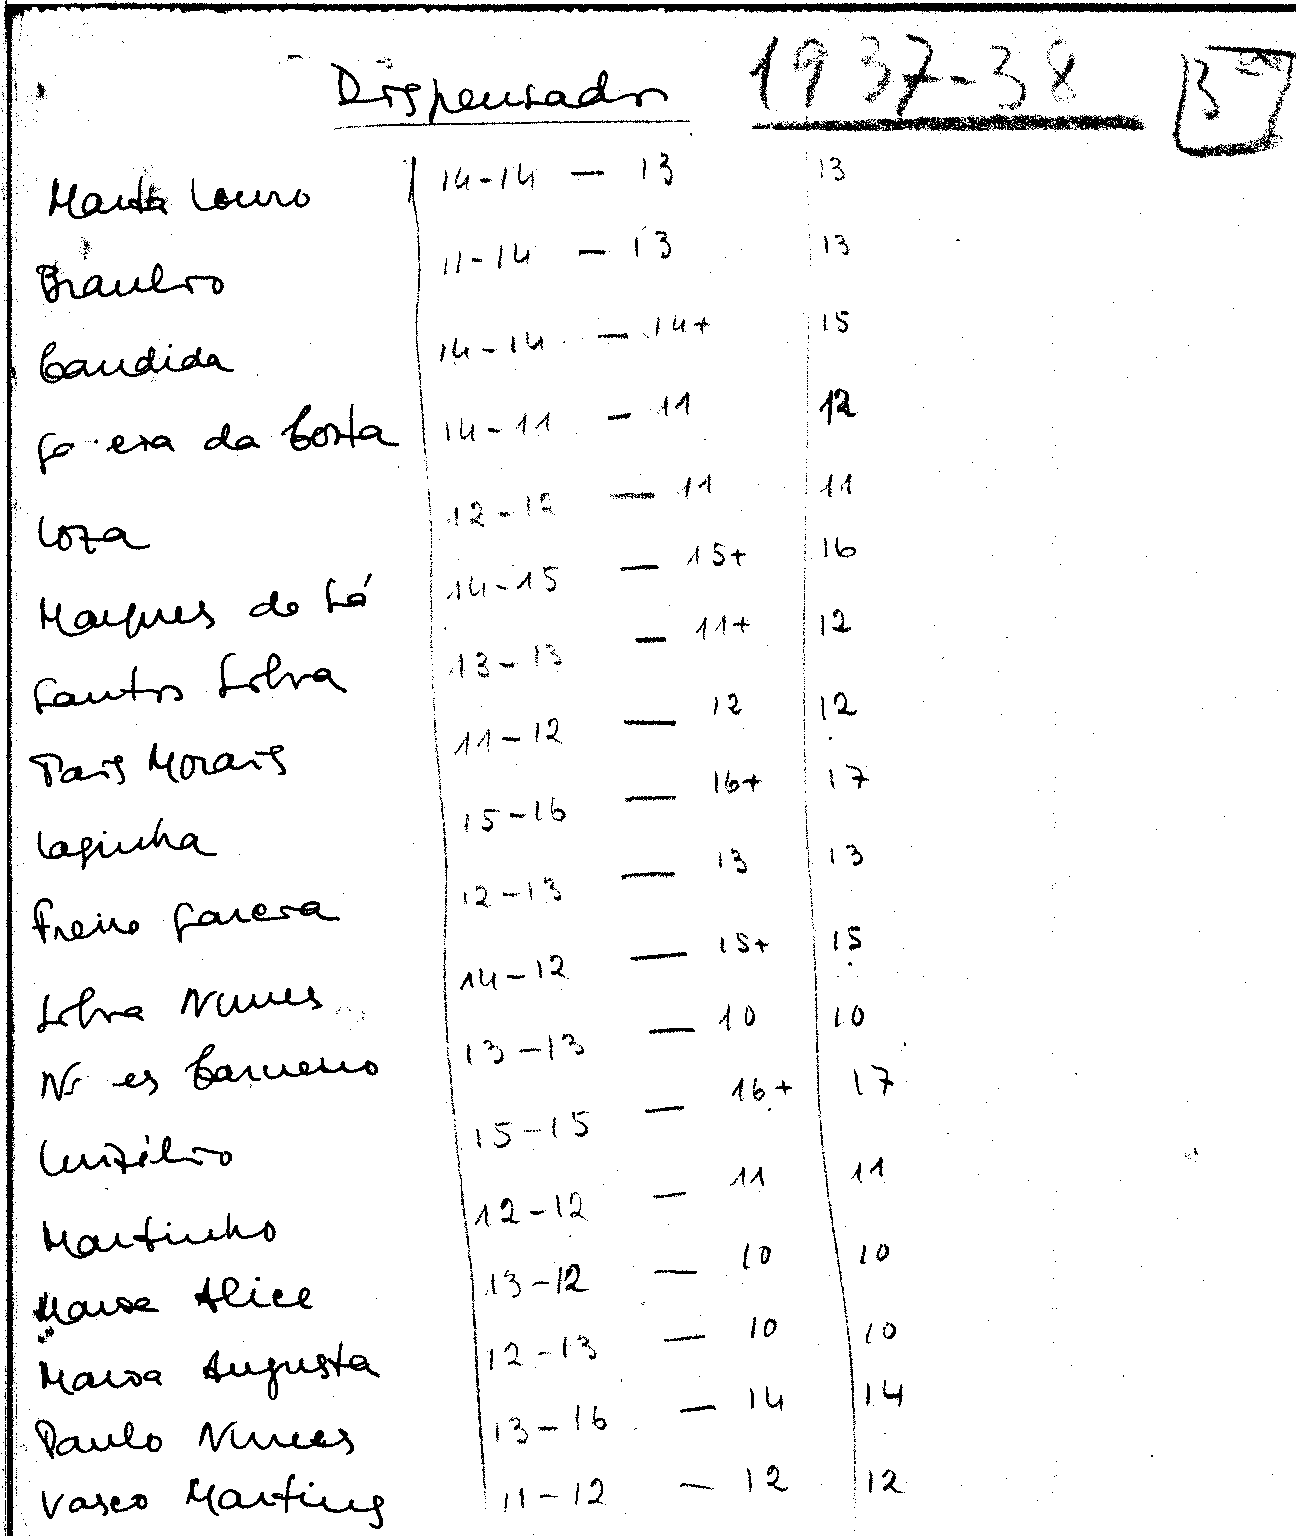 Dispensados 1937-38 3
Marta Louro 14-14 — 13 13
Braulio 11-14 — 13 13
Candida 14-14 — 14+ 15
da Costa 14-11 — 11 12
Loza 12-12 — 11 11
Marques de Sá 14-15 — 15+ 16
Santos Silva 13-13 — 11+ 12
Pais Morais 11-12 — 12 12
Laginha 15-16 — 16+ 17
Freire Garcia 12-13 — 13 13
Silva Nunes 14-12 — 15+ 15
Carneiro 13-13 — 10 10
Luizélio 15-15 — 16+ 17
Martinho 12-12 — 11 11
Maria Alice 13-12 — 10 10
Maria Augusta 12-13 — 10 10
Paulo Nunes 13-16 — 14 14
Vasco Martins 11-12 — 12 12